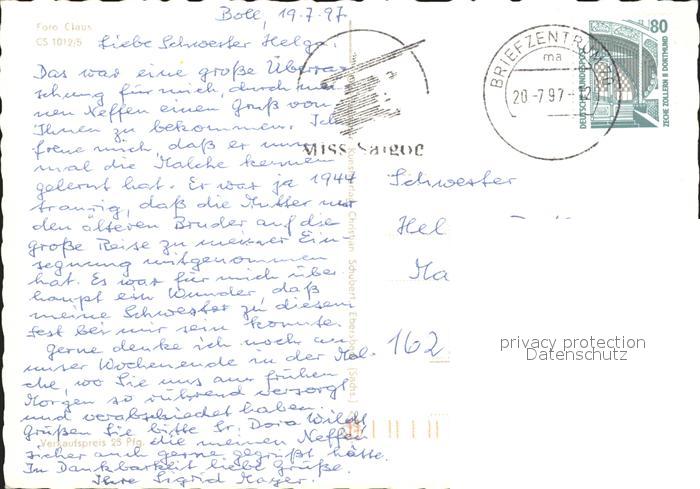 Boll, 19.7.97
Foto Claus
CS 1012/5
Liebe Schwester Helga.
Das war eine große Überra-
schung für mich, durch mei-
nen Neffen einen Gruß von
Ihnen zu bekommen. Ich
freue mich, daß er nun
mal die Malche kennen
gelernt hat. Er war ja 1944
traurig, daß die Mutter nur
den älteren Bruder auf die
große Reise zu meiner Ein-
segnung mitgenommen
hat. Es war für mich über-
haupt ein Wunder, daß
meine Schwester zu diesem
Fest bei mir sein konnte.
Gerne denke ich noch an
unser Wochenende in der Mal-
che, wo Sie uns am frühen
Morgen so rührend versorgt
und verabschiedet haben.
Grüßen Sie bitte Sr. Dora
die meinen Neffen
sicher auch gerne gegrüßt hätte.
In Dankbarkeit liebe Grüße.
Ihre Sigrid Mayer.
Verkaufspreis 25 Pfg.
Christian Schubert, Ebersbach (Sachs.)
Miss Saigon
BRIEFZENTRUM
ma
20-7.97-12
80
DEUTSCHE BUNDESPOST
ZECHE ZOLLERN II DORTMUND
Schwester
Hel
Ma
162
privacy protection
Datenschutz